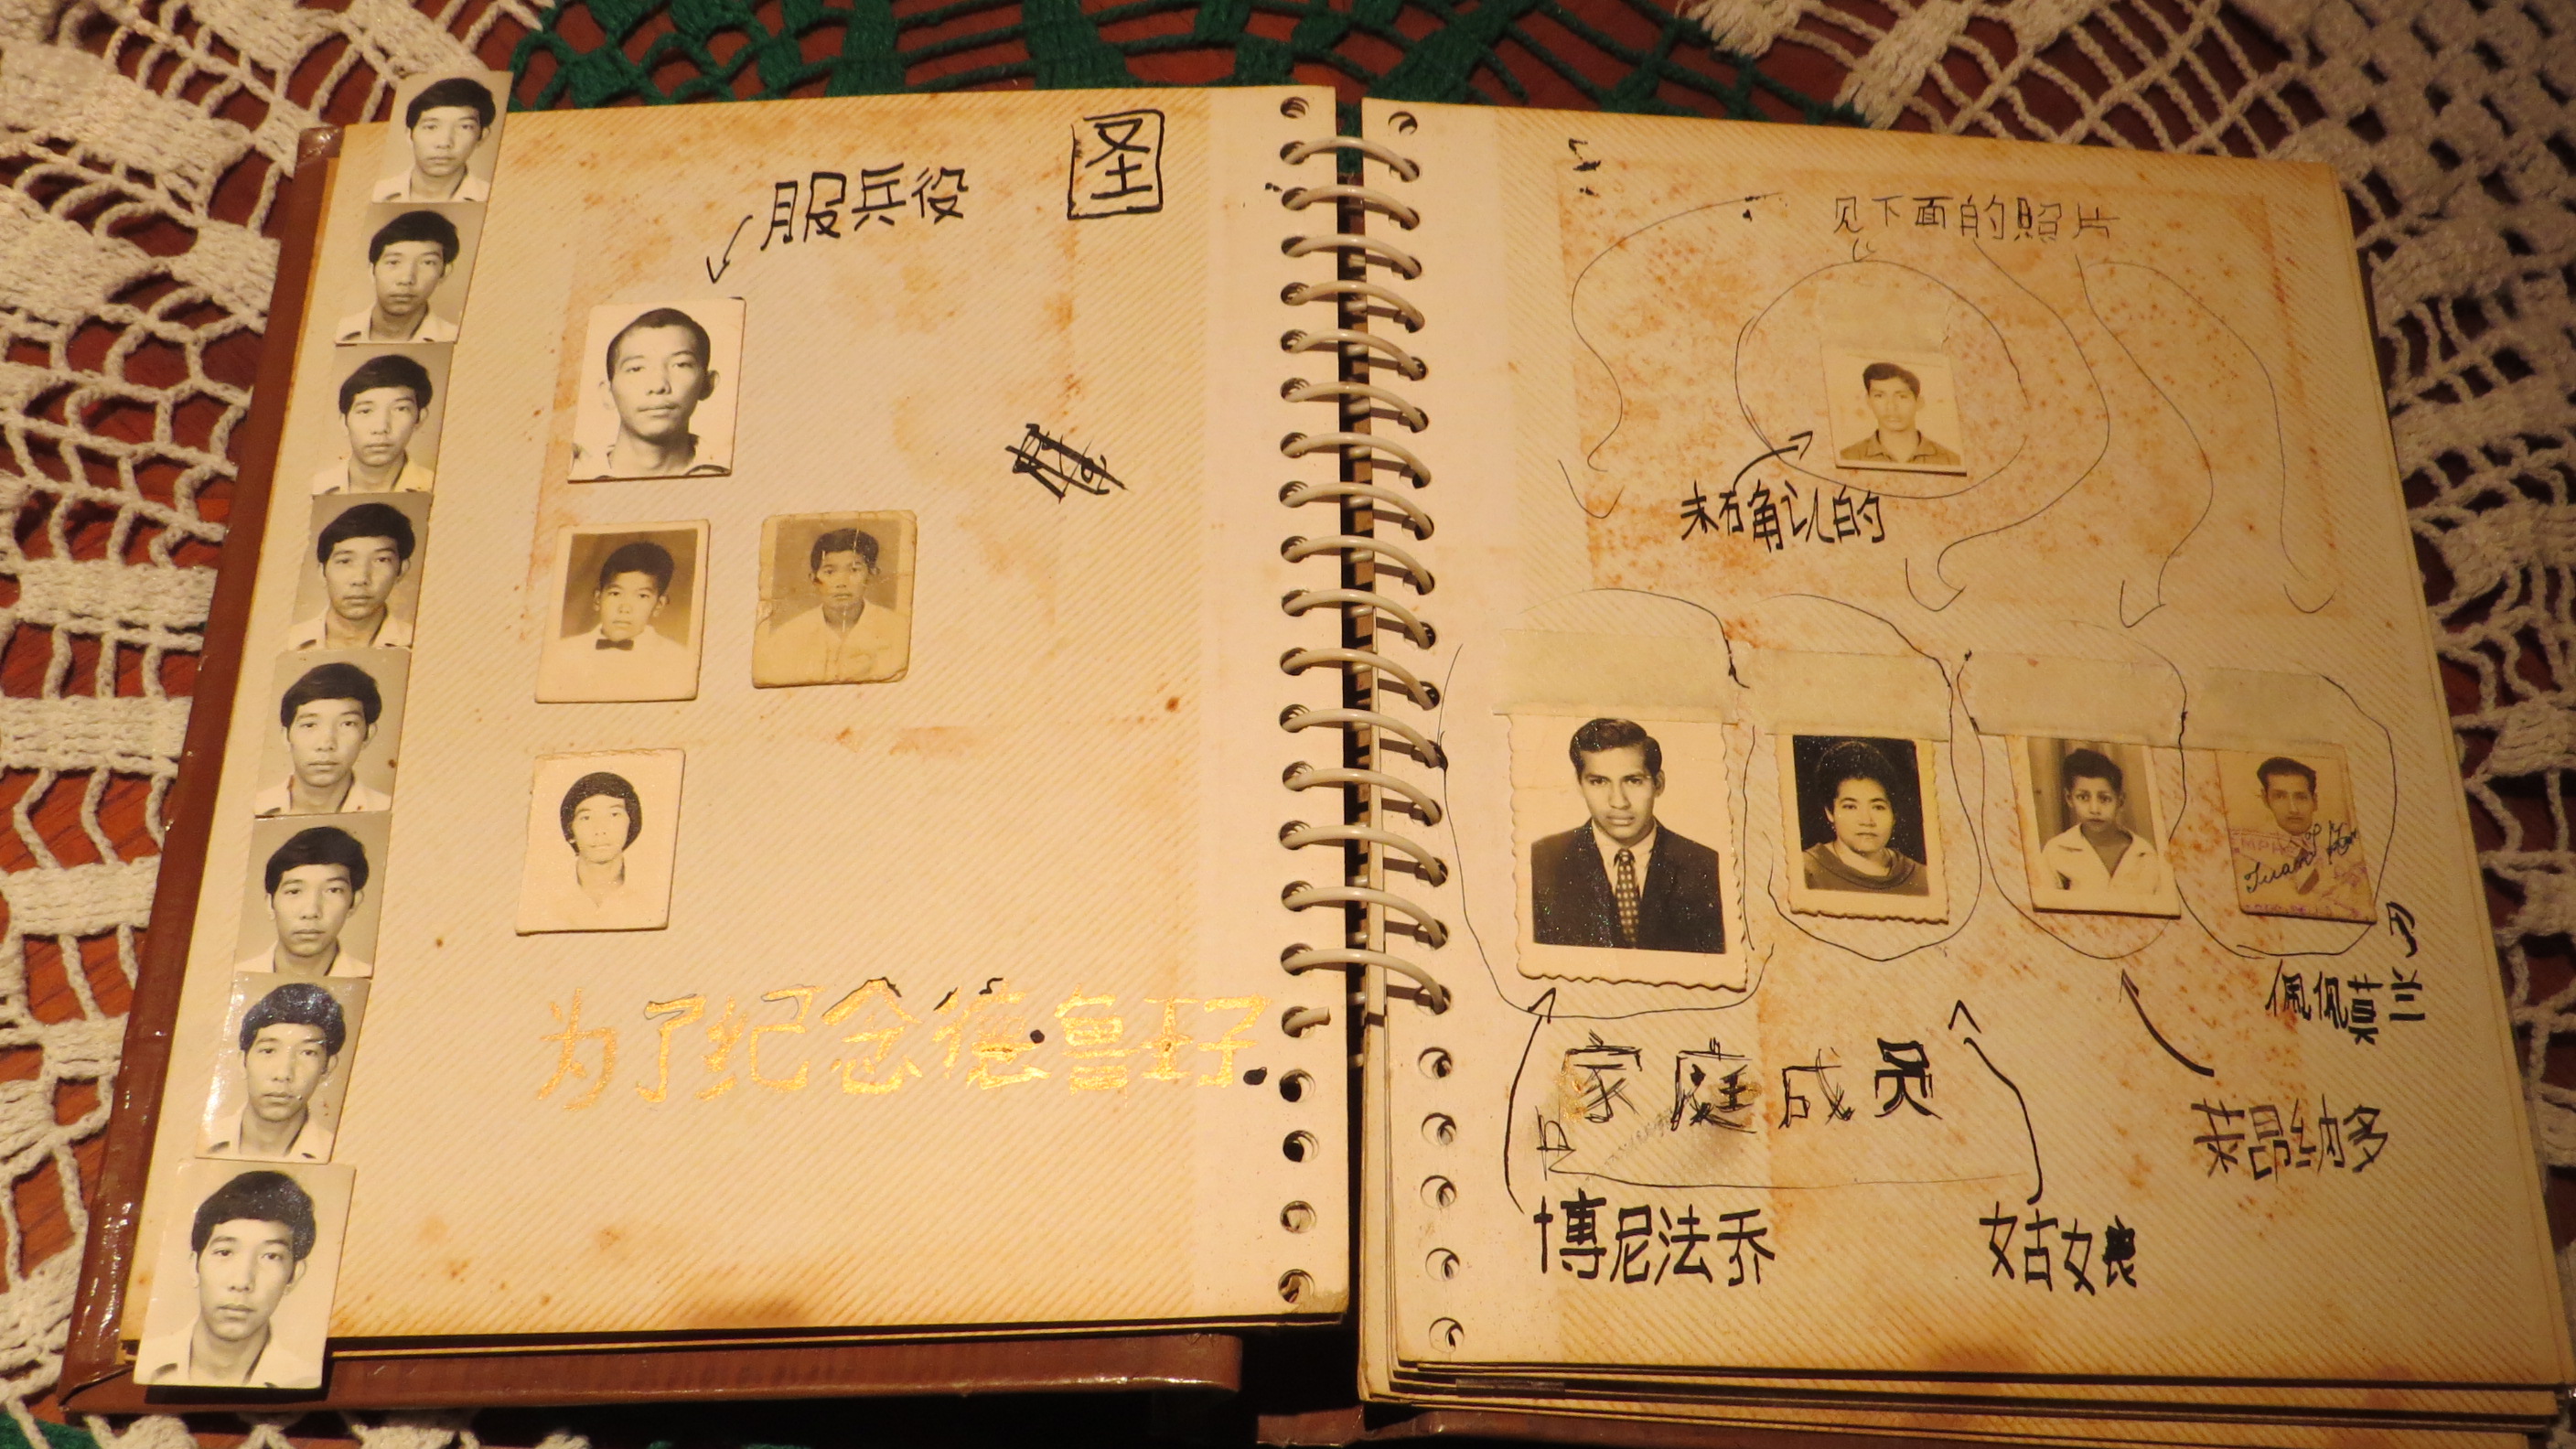 圣
服兵役
为了纪念德鲁
见下面的照片
未确认的
佩佩莫
家庭成员
莱昂纳多
博尼法乔
姑娘